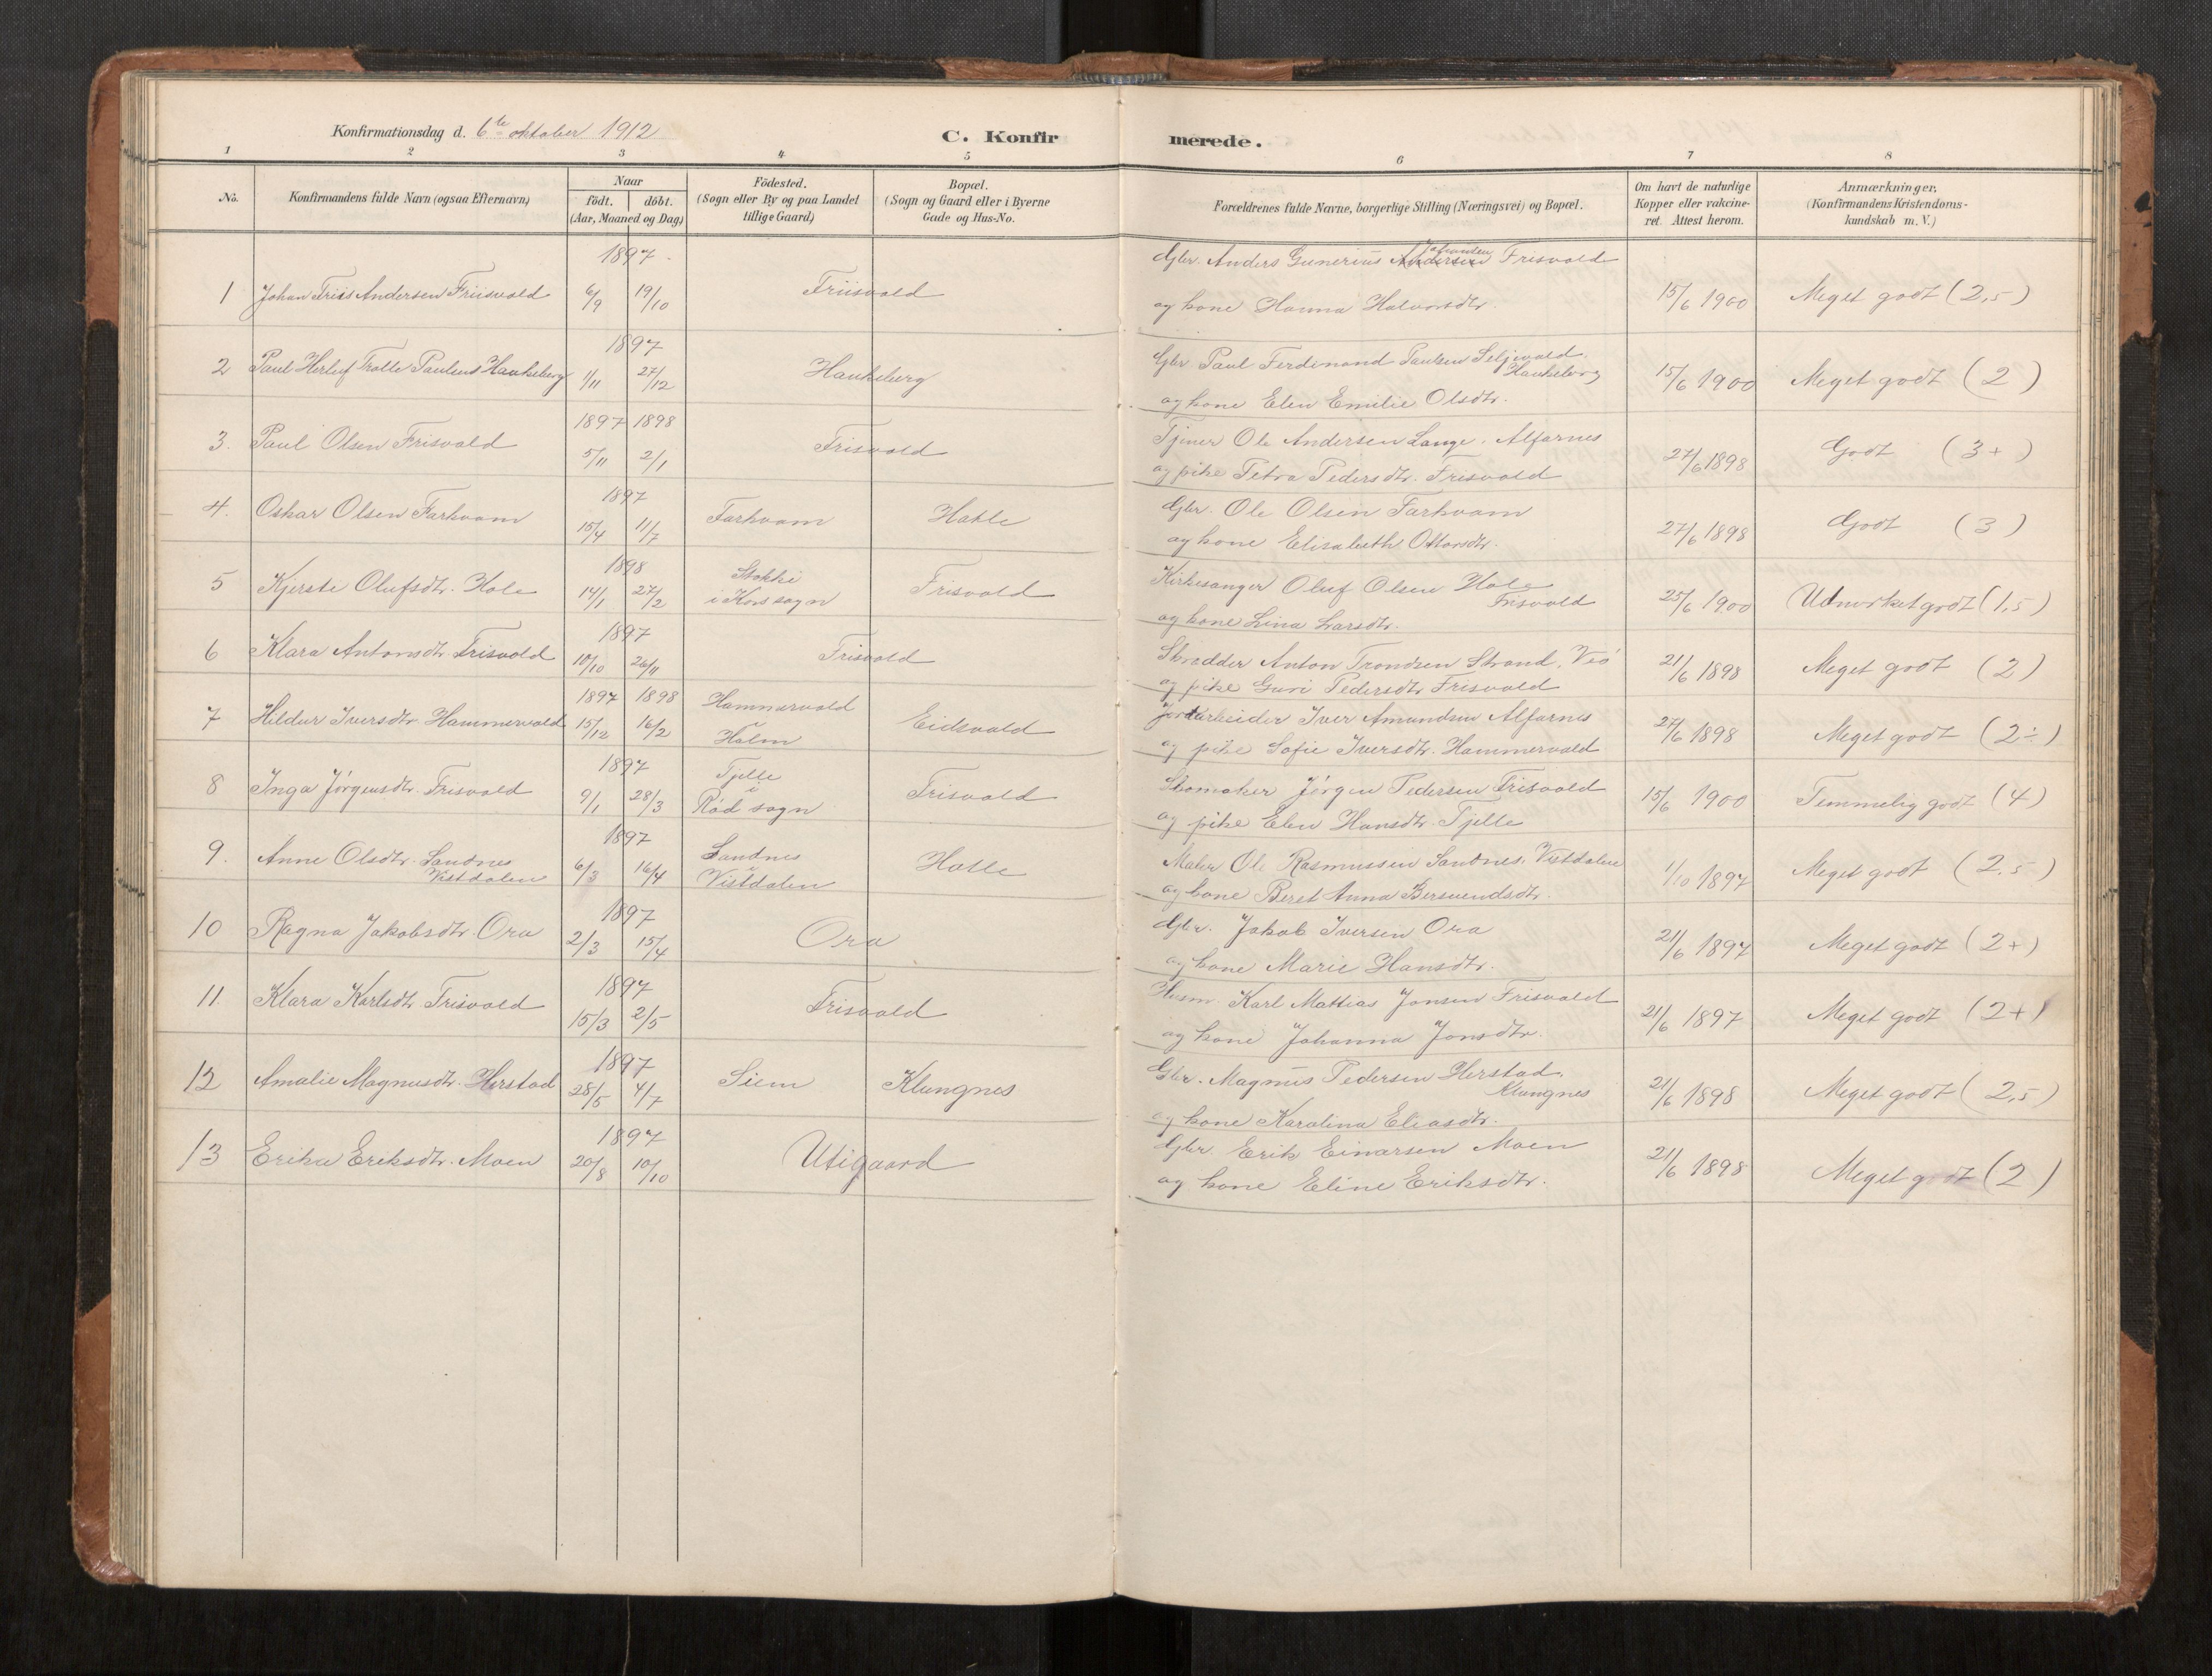 Konfirmationsdag d. 6te oktober 1912
C. Konfirmerede.
1 2 3 4 5 6 7 8
No.
Konfirmandens fulde Navn (ogsaa Efternavn)
Naar
födt. döbt.
(Aar, Maaned og Dag)
Födested.
(Sogn eller By og paa Landet
tillige Gaard)
Bopæl.
(Sogn og Gaard eller i Byerne
Gade og Hus-No.
Forældrenes fulde Navne, borgerlige Stilling (Næringsvei) og Bopæl.
Om havt de naturlige
Kopper eller vakcine-
ret. Attest herom.
Anmærkninger.
(Konfirmandens Kristendoms-
kundskab m. V.)
1897 Gbr. Anders Gunerius Andersen Johansen Frisvold
1 Johan Friis Andersen Friisvold 6/9 19/10 Friisvold og kone Hanna Halvorsdtr. 15/6 1900 Meget godt (2,5)
1897 Gbr Paul Ferdinand Paulsen Seljevold.
Haukeberg
2 Paul Herluf Trolle Paulsens Haukeberg 1/11 27/12 Haukeberg og kone Elen Emilie Olsdtr. 15/6 1900 Meget godt (2)
1897 1898 Tjener Ole Andersen Lange. Alfarnes
3. Paul Olsen Frisvold 5/11 2/1 Frisvold og pike Petra Pedersdtr. Frisvold 27/6 1898 Godt (3+)
1897 Gbr. Ole Olsen Farkvam
4. Oskar Olsen Farkvam 15/4 11/7 Farkvam Hatle og kone Elisabeth Ottarsdtr. 27/6 1898 Godt (3)
1898 Stokke Kirkesanger Oluf Olsen Hole
Frisvold
5 Kjersti Olufsdtr. Hole 14/1 27/2 i Kors sogn Frisvold og kone Lina Larsdtr. 25/6 1900 Udmerket godt (1,5)
1897 Skrædder Anton Trondsen Strand, Veö
6 Klara Antonsdtr. Frisvold 10/10 26/11 Frisvold og pike Guri Pedersdtr Frisvold 21/6 1898 Meget godt (2)
1897 1898 Hammervold Jordarbeider Iver Amundsen Alfarnes
7 Hildur Iversdtr. Hammervold 15/12 16/2 i Holm Eidsvold og pike Sofie Iversdtr. Hammervold 27/6 1898 Meget godt (2÷)
1897 Tjelle Skomaker Jörgen Pedersen Frisvold
8 Inga Jörgensdtr. Frisvold 9/1 28/3 i Röd sogn Frisvold og pike Elen Hansdtr. Tjelle 15/6 1900 Temmelig godt (4)
1897 Sandnes Maler Ole Rasmussen Sandnes, Vistdalen
9. Anne Olsdtr. Sandnes
Vistdalen 6/3 16/4 i Vistdalen Hatle og kone Beret Anna Bersvendsdtr. 1/10 1897 Meget godt (2,5)
1897 Gbr. Jakob Iversen Ora
10 Ragna Jakobsdtr. Ora 2/3 15/4 Ora og kone Marie Hansdtr. 21/6 1897 Meget godt (2+)
1897 Husm. Karl Mathias Jonsen Frisvold
11. Klara Karlsdtr Frisvold 15/3 2/5 Frisvold og kone Johanna Jonsdtr. 21/6 1897 Meget godt (2+)
1897 Gbr. Magnus Pedersen Herstad.
Klungnes
12 Amalie Magnusdtr. Herstad 28/5 4/7 Siem Klungnes og kone Karolina Eliasdtr. 21/6 1898 Meget godt (2,5)
1897 Gbr. Erik Einarsen Moen
13 Erika Eriksdtr. Moen 20/8 10/10 Utigaard og kone Eline Eriksdtr. 21/6 1898 Meget godt (2)